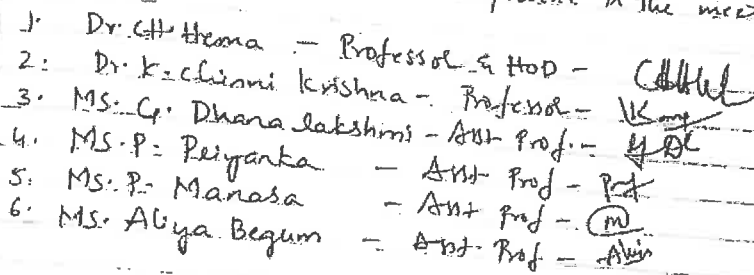 in the meet
1. Dr. CH. Hema - Professor & HOD -
2: Dr. K. Chinni Krishna - Professor -
3. MS. G. Dhana lakshmi - Asst Prof. -
4. MS. P. Peiyanka - Asst Prof -
5. MS. P. Manasa - Asst Prof - m
6. MS. Aliya Begum - Asst. Prof -